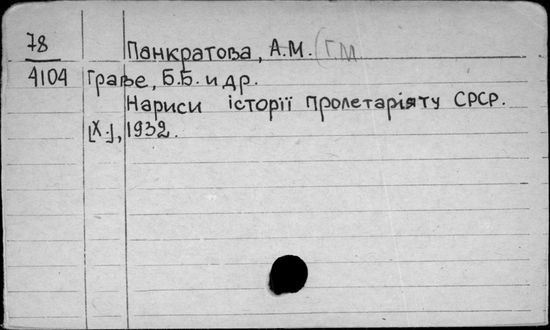 78 Панкратова, А.М. (Г.М.
4104 Граве, Б.Б. и др.
Нариси історії пролетаріяту СРСР.
[Х.], 1932.